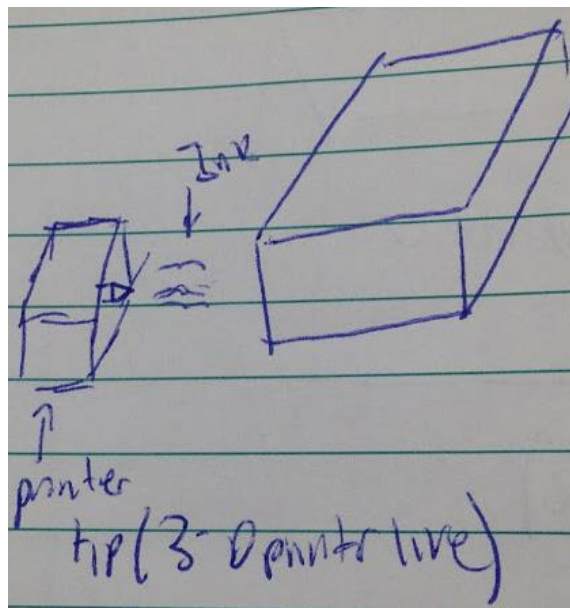 Ink
printer
tip (3-D printr like)